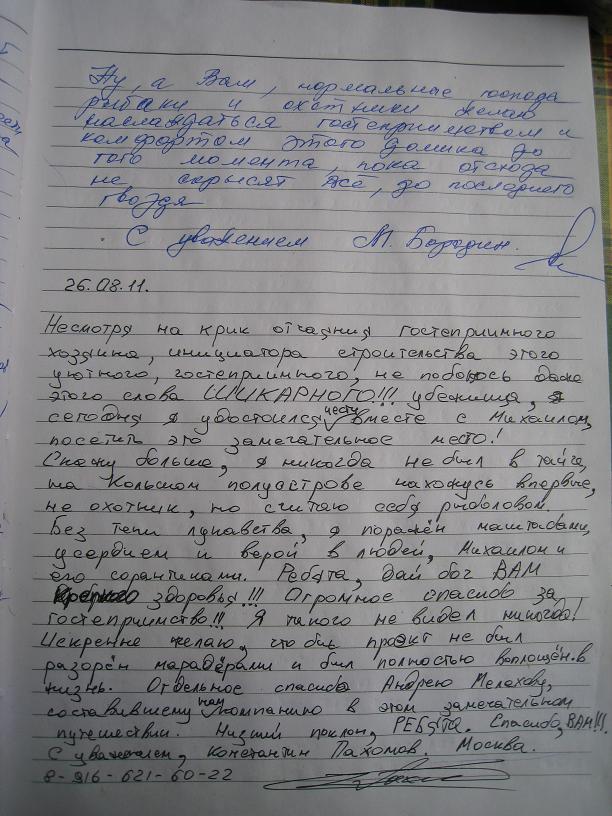 Ну, а Вам, нормальные господа
рыбаки и охотники желаю
наслаждаться гостеприимством и
комфортом этого домика до
того момента, пока отсюда
не скрысят всё, до последнего
гвоздя
С уважением М. Бородин.
26.08.11.
Несмотря на крик отчаяния гостеприимного
хозяина, инициатора строительства этого
уютного, гостеприимного, не побоюсь даже
этого слова ШИКАРНОГО!!! убежища,
сегодня я удостоился чести вместе с Михаилом,
посетить это замечательное место!
Скажу больше, я никогда не был в тайге,
на Кольском полуострове нахожусь впервые,
не охотник, но считаю себя рыболовом.
Без тени лукавства, я поражён масштабами,
усердием и верой в людей, Михаилом и
его соратниками. Ребята, дай бог ВАМ
крепкого здоровья!!! Огромное спасибо за
гостеприимство!!! Я такого не видел никогда!
Искренне желаю, что бы проэкт не был
разорён марадёрами и был полностью воплощён в
жизнь. Отдельное спасибо Андрею Мелахову,
составившему нам компанию в этом замечательном
путешествии. Низкий поклон, РЕБЯТА. Спасибо, ВАМ!!!
С уважением, Константин Пахомов. Москва.
8-916-621-60-22